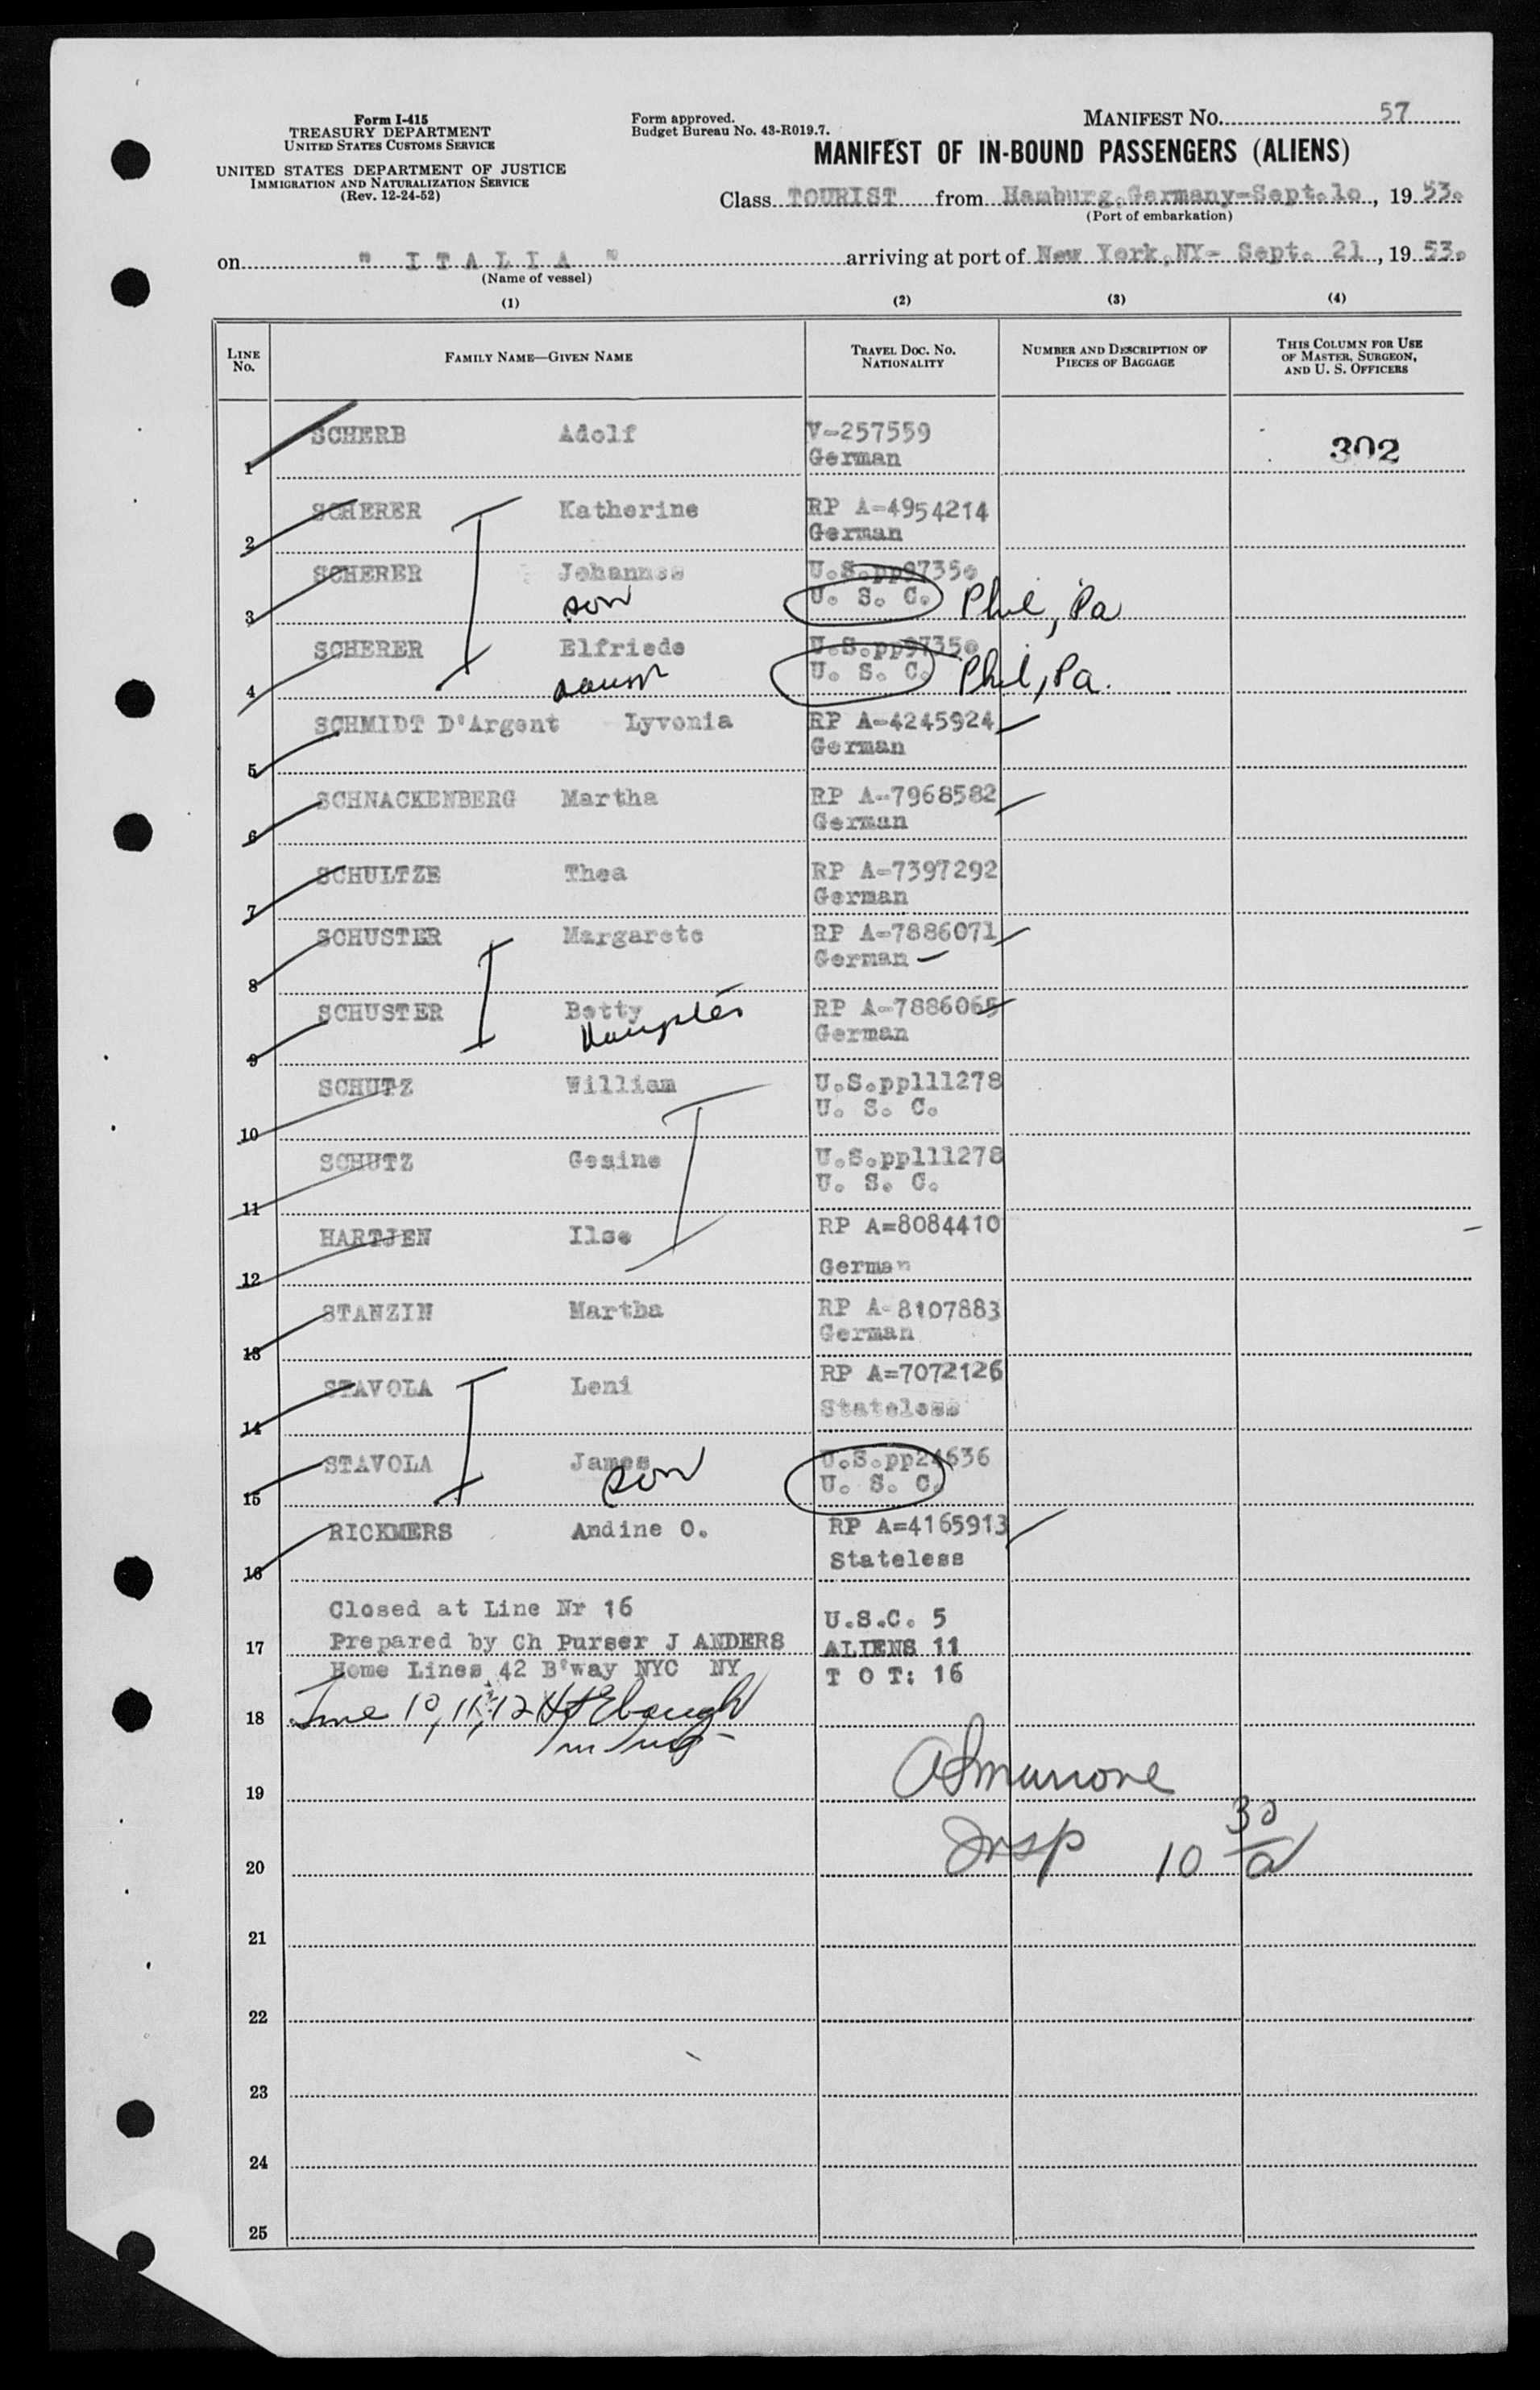 Form I-415
TREASURY DEPARTMENT
UNITED STATES CUSTOMS SERVICE
UNITED STATES DEPARTMENT OF JUSTICE
IMMIGRATION AND NATURALIZATION SERVICE
(Rev. 12-24-52)
Form approved.
Budget Bureau No. 43-R019.7.
MANIFEST NO. 57
MANIFEST OF IN-BOUND PASSENGERS (ALIENS)
Class TOURIST from Hamburg,Germany-Sept.10, 1953.
(Port of embarkation)
on " I T A L I A " arriving at port of New York,NY- Sept. 21, 1953.
(Name of vessel)
(1) (2) (3) (4)
LINE NO. FAMILY NAME—GIVEN NAME TRAVEL DOC. NO. NATIONALITY NUMBER AND DESCRIPTION OF PIECES OF BAGGAGE THIS COLUMN FOR USE OF MASTER, SURGEON, AND U. S. OFFICERS
1 SCHERB Adolf V-257559 302
German
2 SCHERER Katherine RP A-4954214
German
3 SCHERER Johannes U.S.pp9735e
son U. S. C. Phil, Pa
4 SCHERER Elfriede U.S.pp9735e
U. S. C. Phil, Pa.
5 SCHMIDT D'Argent Lyvonia RP A-4245924
German
6 SCHNACKENBERG Martha RP A-7968582
German
7 SCHULTZE Thea RP A-7397292
German
8 SCHUSTER Margarete RP A-7886071
German
9 SCHUSTER Betty RP A-7886065
Daughter German
10 SCHUTZ William U.S.pp111278
U. S. C.
11 SCHUTZ Gesine U.S.pp111278
U. S. C.
12 HARTJEN Ilse RP A=8084410
German
13 STANZIN Martha RP A-8107883
German
14 STAVOLA Leni RP A=7072126
Stateless
15 STAVOLA James U.S.pp24636
son U. S. C.
16 RICKMERS Andine O. RP A=4165913
Stateless
Closed at Line Nr 16 U.S.C. 5
17 Prepared by Ch Purser J ANDERS ALIENS 11
Home Lines 42 B'way NYC NY T O T: 16
18 Line 10, 11, 12
19
20 Insp 10 30/a
21
22
23
24
25